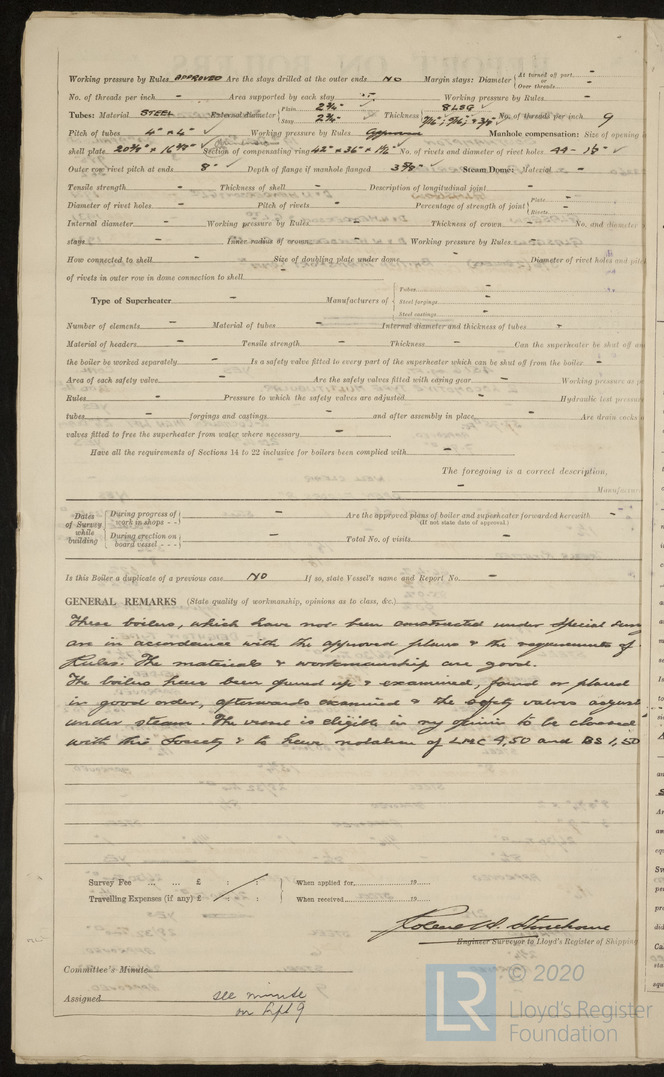 Working pressure by Rules APPROVED Are the stays drilled at the outer ends NO Margin stays: Diameter { At turned off part - or Over threads -
No. of threads per inch - Area supported by each stay - Working pressure by Rules -
Tubes: Material STEEL External diameter { Plain 2¾" Stay 2¾" Thickness { 8 LSG No. of threads per inch 9
Pitch of tubes 4" × 4" Working pressure by Rules Approved Manhole compensation: Size of opening in
shell plate Section of compensating ring 42" × 36" × 1½" No. of rivets and diameter of rivet holes 44 -
Outer row rivet pitch at ends 8" Depth of flange if manhole flanged Steam Dome: Material -
Tensile strength - Thickness of shell - Description of longitudinal joint -
Diameter of rivet holes - Pitch of rivets - Percentage of strength of joint { Plate - Rivets -
Internal diameter - Working pressure by Rules - Thickness of crown - No. and diameter
stays - Inner radius of crown - Working pressure by Rules -
How connected to shell - Size of doubling plate under dome - Diameter of rivet holes and pitch
of rivets in outer row in dome connection to shell -
Type of Superheater - Manufacturers of { Tubes - Steel forgings - Steel castings -
Number of elements - Material of tubes - Internal diameter and thickness of tubes -
Material of headers - Tensile strength - Thickness - Can the superheater be shut off
the boiler be worked separately - Is a safety valve fitted to every part of the superheater which can be shut off from the boiler -
Area of each safety valve - Are the safety valves fitted with easing gear - Working pressure as
Rules - Pressure to which the safety valves are adjusted - Hydraulic test pressure
tubes - forgings and castings - and after assembly in place - Are drain cocks
valves fitted to free the superheater from water where necessary -
Have all the requirements of Sections 14 to 22 inclusive for boilers been complied with -
The foregoing is a correct description,
- Manufacturer
Dates of Survey while building { During progress of work in shops - - - Are the approved plans of boiler and superheater forwarded herewith -
(If not state date of approval.)
During erection on board vessel - - - - Total No. of visits -
Is this Boiler a duplicate of a previous case NO If so, state Vessel's name and Report No. -
GENERAL REMARKS (State quality of workmanship, opinions as to class, &c.)
These boilers, which have not been constructed under special
are in accordance with the approved plans & the requirements of
Rules. The materials & workmanship are good.
The boilers have been opened up & examined, found or placed
in good order, afterwards examined & the safety valves adjust
under steam. The vessel is eligible in my opinion to be classed
with this Society & to have notation of LMC 9,50 and BS 1,50
Survey Fee ... ... £ : : When applied for, 19
Travelling Expenses (if any) £ : : When received, 19
Engineer Surveyor to Lloyd's Register of Shipping
Committee's Minute
Assigned see minute
on
LR © 2020
Lloyd's Register
Foundation